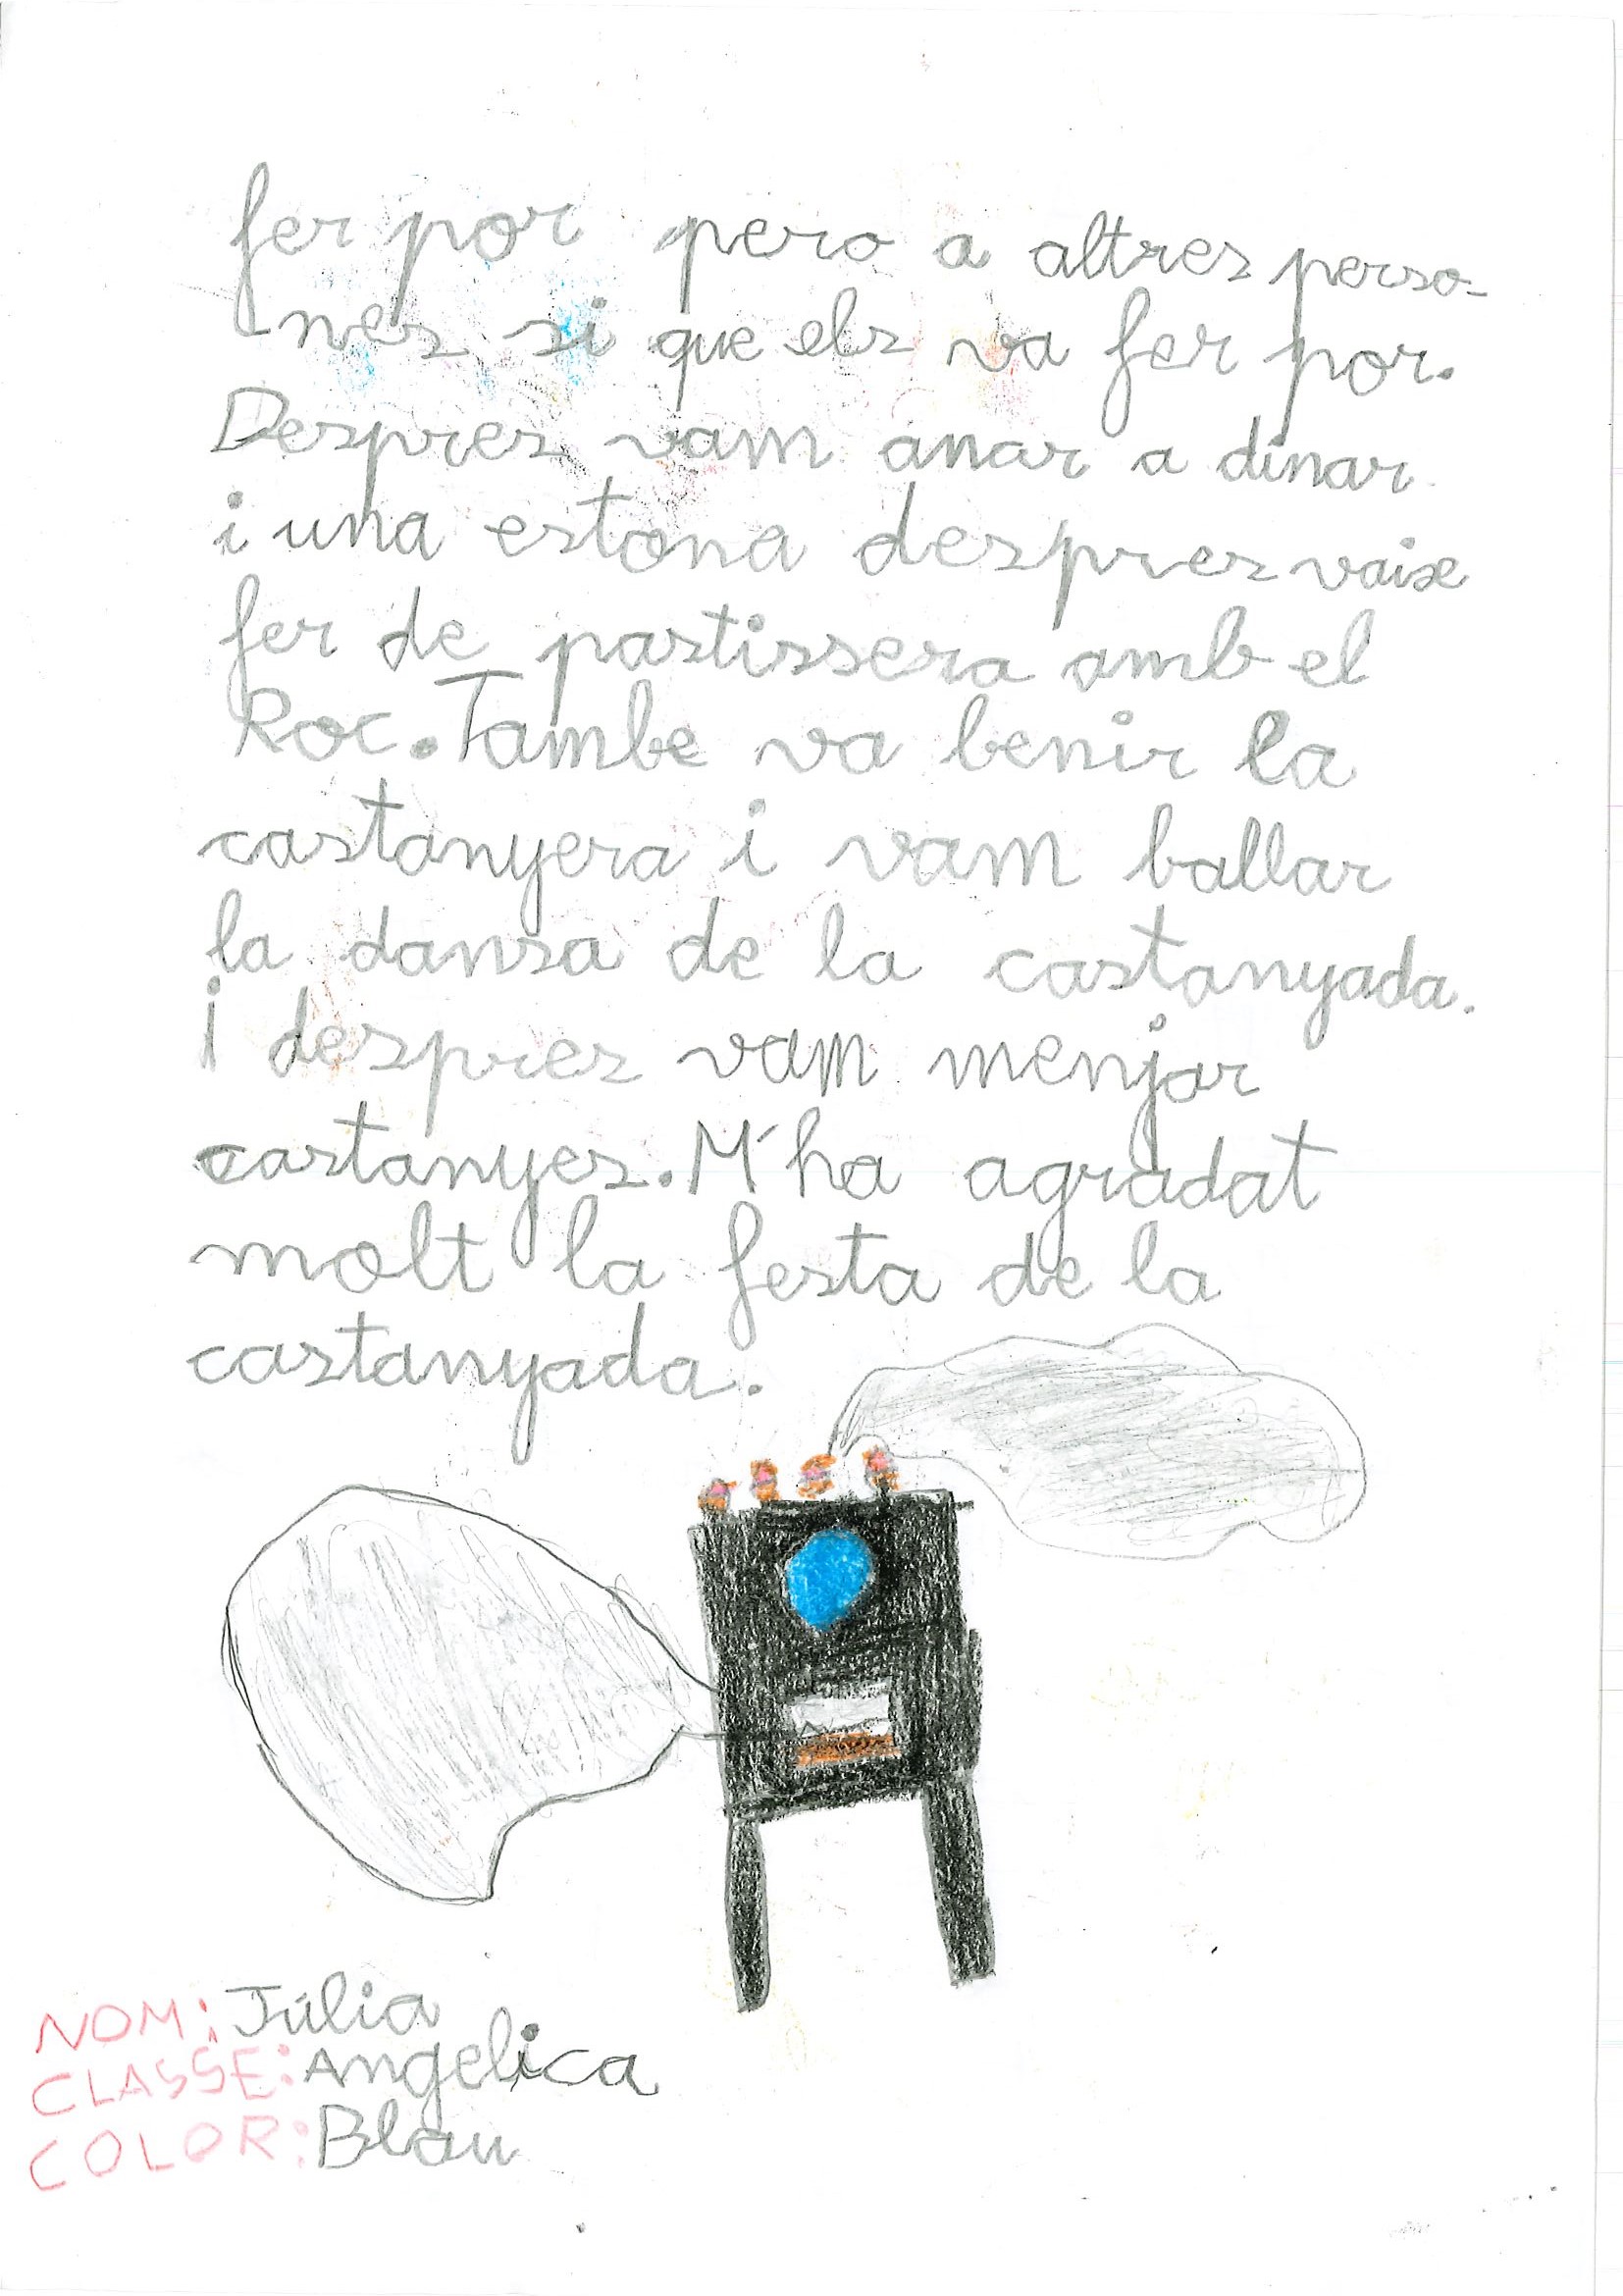 fer por pero a altres perso-
nes si que els va fer por.
Despres vam anar a dinar
i una estona despres vaix
fer de pastissera amb el
Roc. Tambe va benir la
castanyera i vam ballar
la dansa de la castanyada.
I despres vam menjar
castanyes. M'ha agradat
molt la festa de la
castanyada.
NOM: Júlia
CLASSE: Angelica
COLOR: Blau